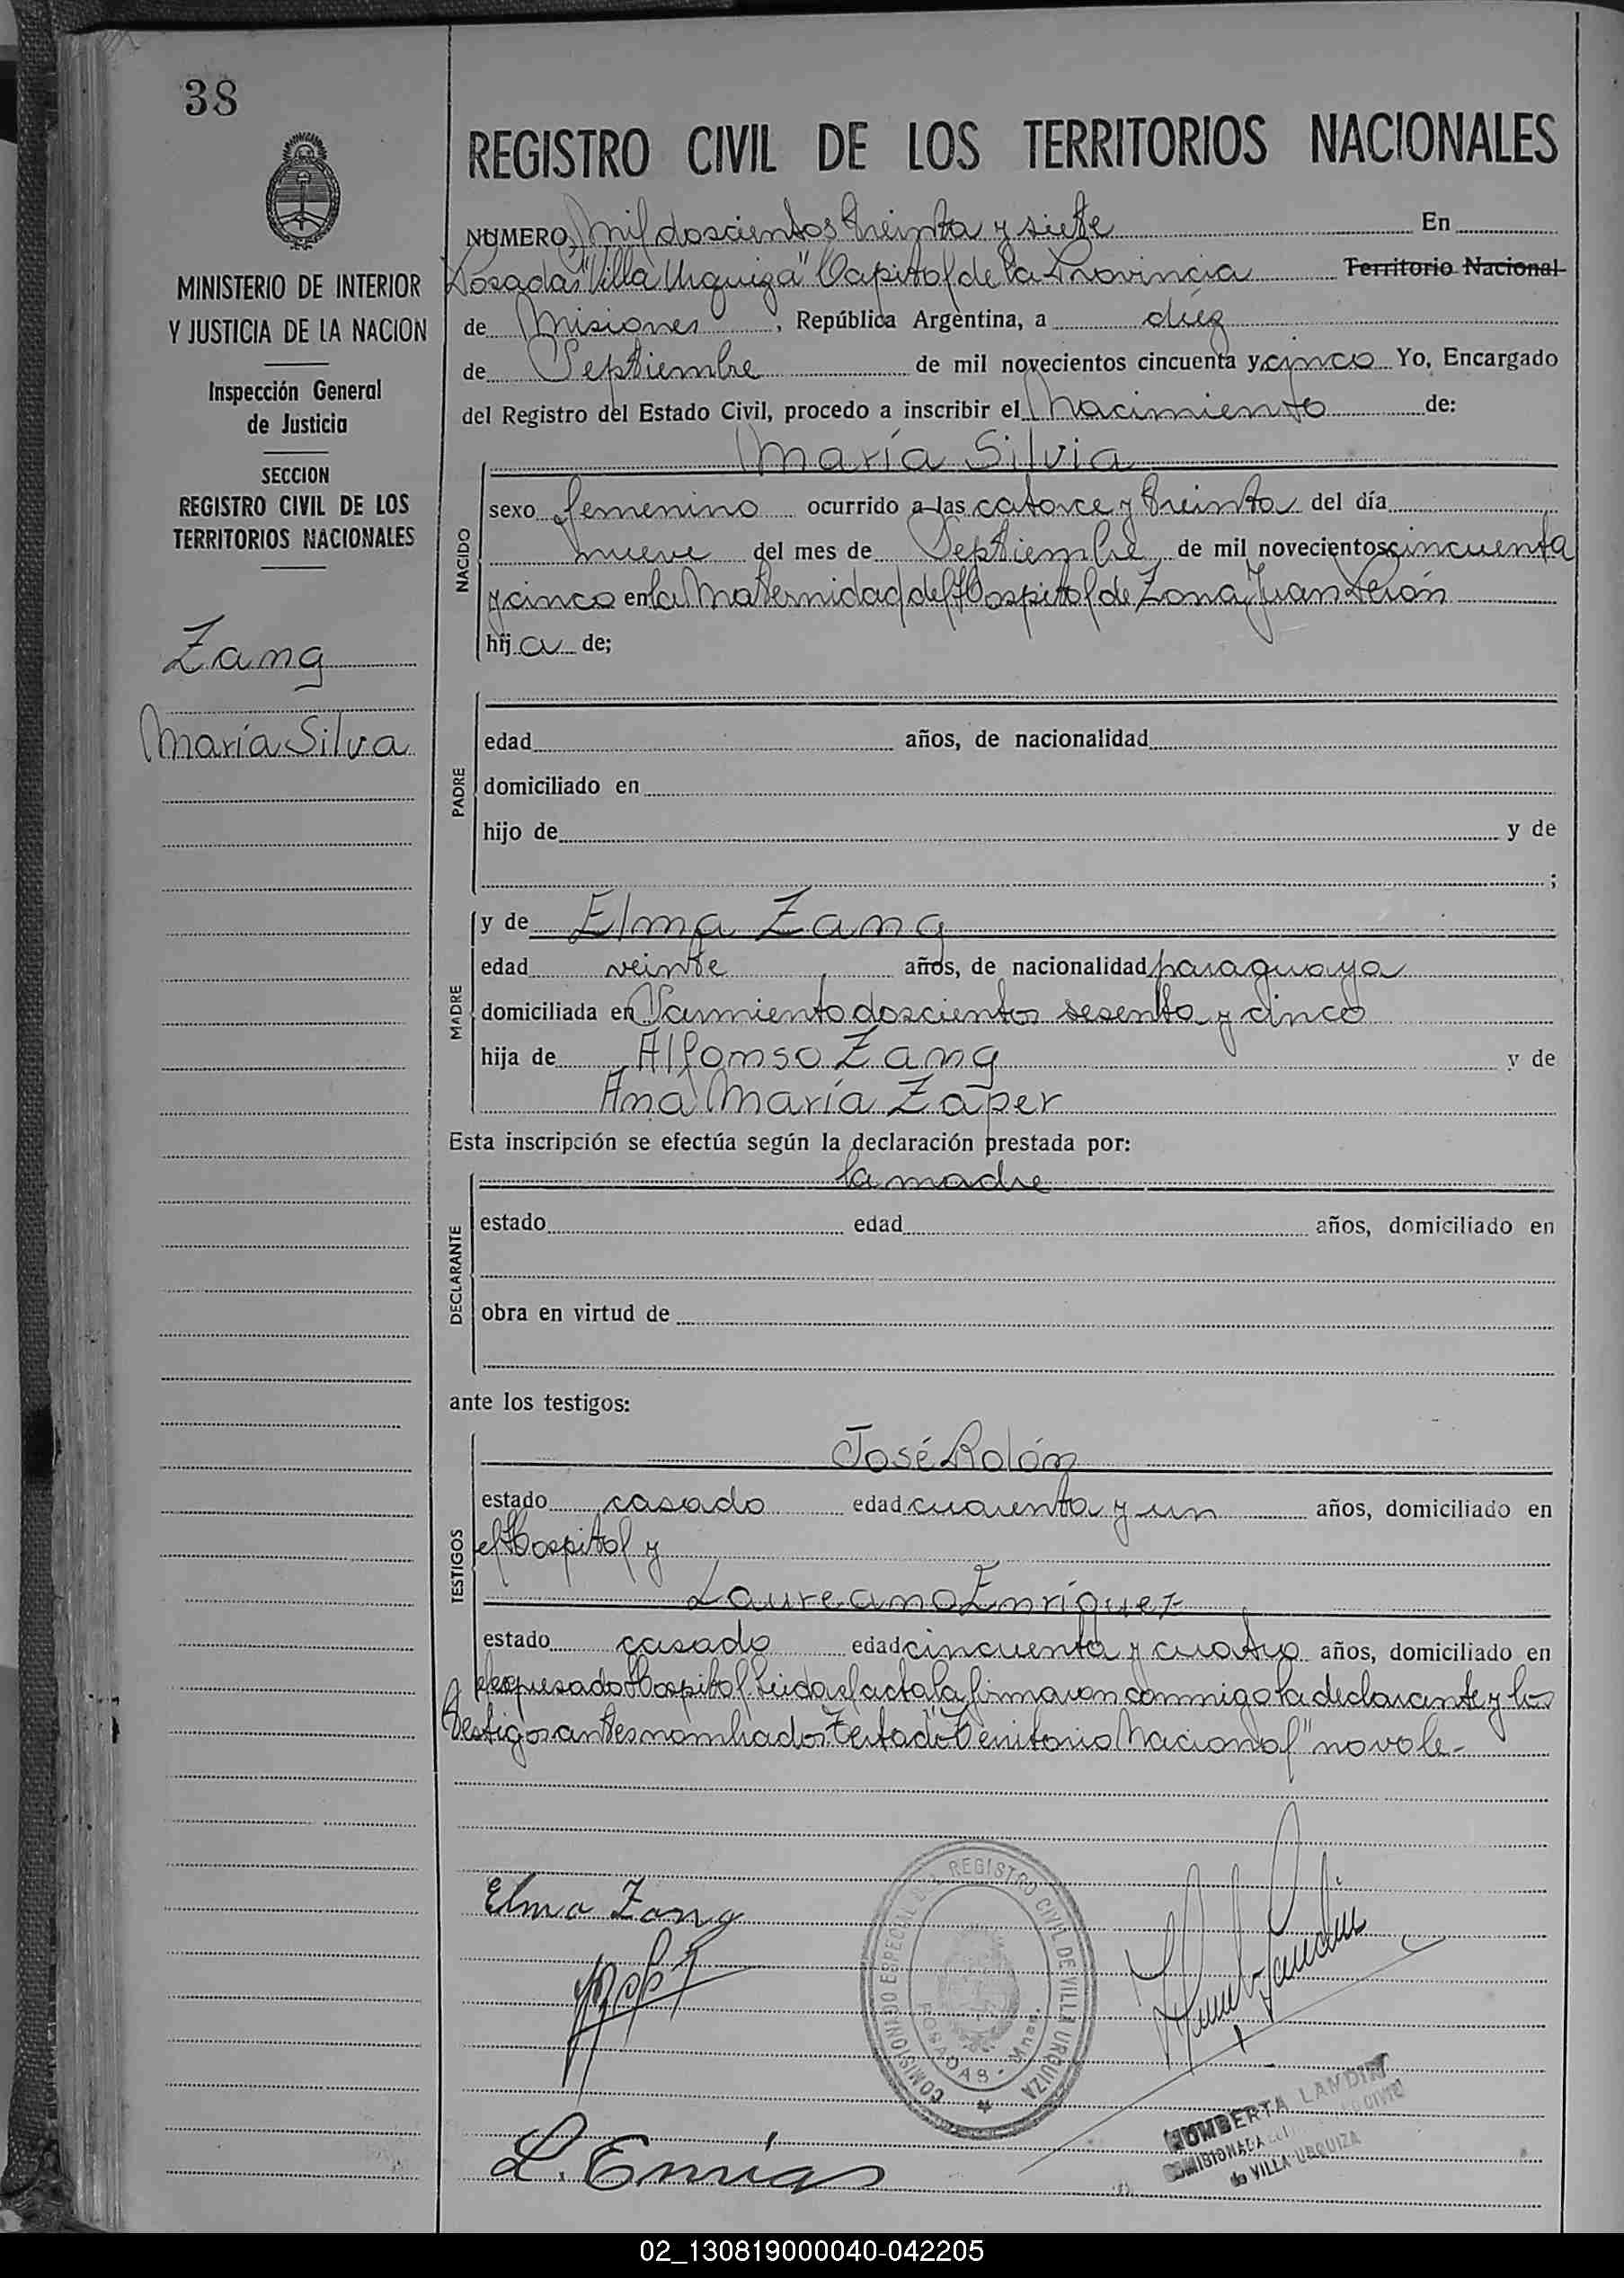 38
MINISTERIO DE INTERIOR
Y JUSTICIA DE LA NACION
Inspección General
de Justicia
SECCION
REGISTRO CIVIL DE LOS
TERRITORIOS NACIONALES
Zang
María Silva
REGISTRO CIVIL DE LOS TERRITORIOS NACIONALES
NUMERO mil doscientos treinta y siete En
Posadas "Villa Urquiza" Capital de la Provincia Territorio Nacional
de Misiones, República Argentina, a diez
de Septiembre de mil novecientos cincuenta y cinco Yo, Encargado
del Registro del Estado Civil, procedo a inscribir el Nacimiento de:
María Silvia
NACIDO
sexo femenino ocurrido a las catorce y treinta del día
nueve del mes de Septiembre de mil novecientos cincuenta
y cinco en la Maternidad del Hospital de Zona Juan Perón
hij a de;
PADRE
edad años, de nacionalidad
domiciliado en
hijo de y de
;
MADRE
y de Elma Zang
edad veinte años, de nacionalidad paraguaya
domiciliada en Sarmiento doscientos sesenta y cinco
hija de Alfonso Zang y de
Ana María Zaper
Esta inscripción se efectúa según la declaración prestada por:
la madre
DECLARANTE
estado edad años, domiciliado en
obra en virtud de
ante los testigos:
TESTIGOS
José Rolón
estado casado edad cuarenta y un años, domiciliado en
el Hospital y
Laureano Enríquez
estado casado edad cincuenta y cuatro años, domiciliado en
el expresado Hospital. Leida el acta la firmaron conmigo la declarante y los
testigos antes nombrados. Testado: "Territorio Nacional" no vale.-
Elma Zang
COMISIONADO ESPECIAL DEL REGISTRO CIVIL DE VILLA URQUIZA
POSADAS - Mnes.
HOMBERTA LANDIN
COMISIONADA CIVIL
de VILLA URQUIZA
02_130819000040-042205